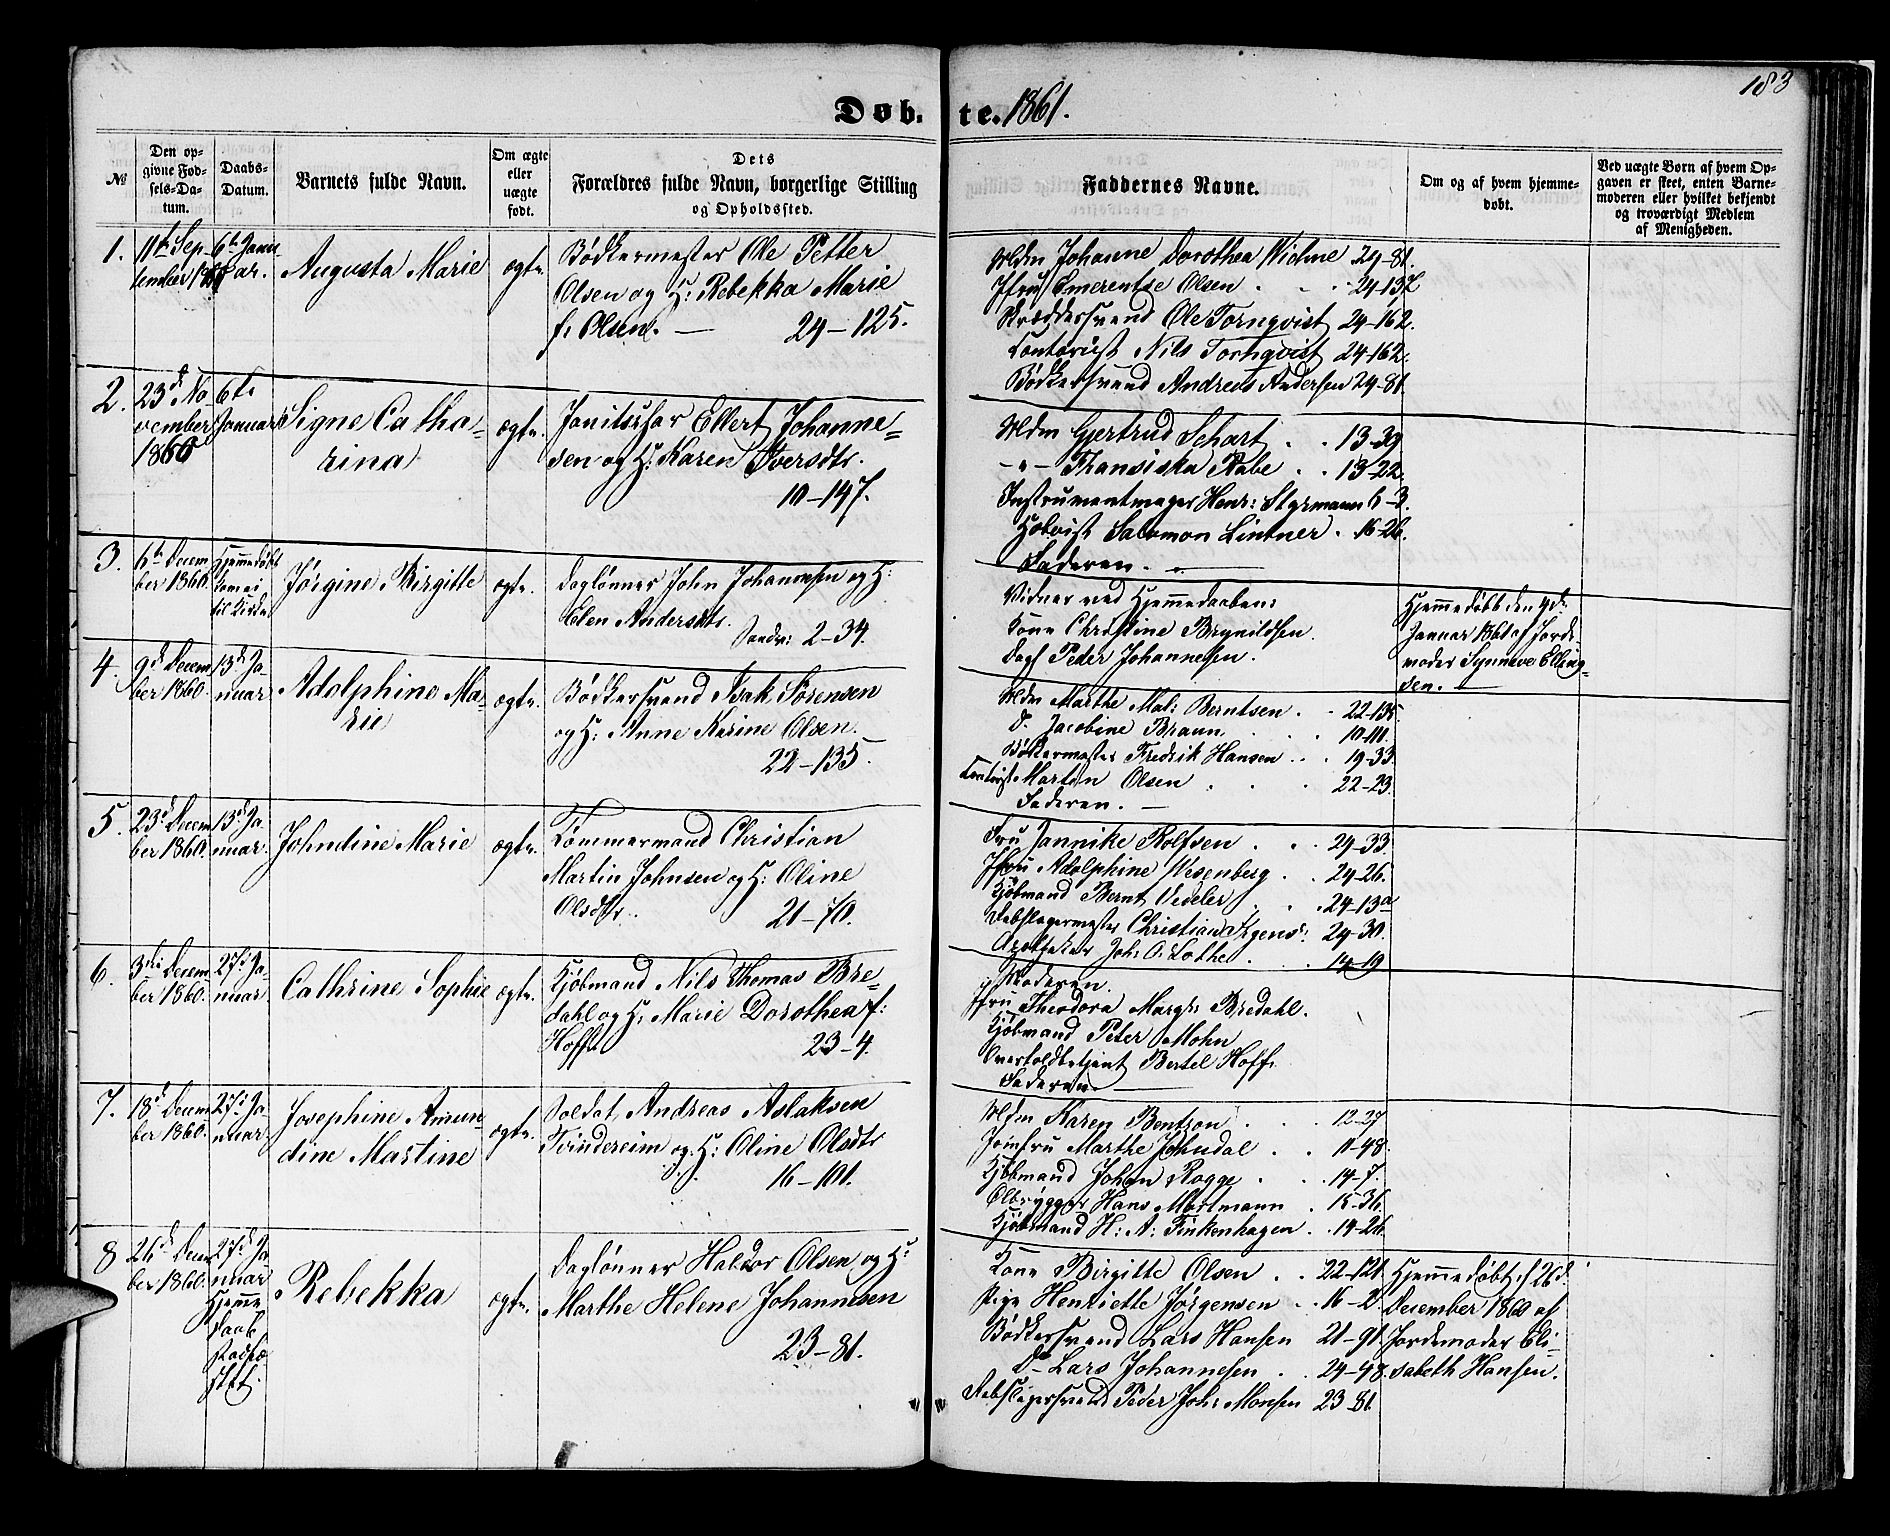 183
Døb. te. 1861.
№
Den op-
givne Fød-
sels-Da-
tum.
Daabs-
Datum.
Barnets fulde Navn.
Om ægte
eller
uægte
født.
Dets
Forældres fulde Navn, borgerlige Stilling
og Opholdssted.
Faddernes Navne.
Om og af hvem hjemme-
døbt.
Ved uægte Børn af hvem Op-
gaven er skeet, enten Barne-
moderen eller hvilket bekjendt
og troværdigt Medlem
af Menigheden.
1.
11te Sep-
tember 1860
6te Janu-
ar.
Augusta Marie
ægte.
Bødkermester Ole Petter
Olsen og H: Rebekka Marie
f: Olsen. — 24-125.
Mdm Johanne Dorothea Wichne 24-81.
Jfru Emerentse Olsen 24-132
Skræddersvend Ole Tornqvist 24-162.
Contorist Nils Tornqvist 24-162.
Bødkersvend Andreas Andersen 24-81.
2.
23d No-
vember
1860
6te
Januar
Signe Catha-
rina
ægte.
Janitschar Ellert Johanne-
sen og H: Karen Iversdtr.
10-147.
Mdm Gjertrud Schart 13-39
-"- Fransiska Rabe 13-22.
Instrumentmager Henr: Styrmann 6-3.
Hoboist Salomon Lintner 16-26.
Faderen.
3.
6te Decem-
ber 1860.
Hjemmedøbt
kom ei
til Kirke
Jørgine Birgitte
ægte.
Daglønner John Johannesen og H:
Elen Andersdtr.
Sandv: 2-34.
Vidner ved Hjemmedaaben:
Kone Christine Brynildsen.
Dagl Peder Johannesen.
Hjemmedøbt den 4de
Januar 1861 af Jorde-
moder Synneve Elling-
sen.
4.
9de Decem-
ber 1860.
13de Ja-
nuar
Adolphine Ma-
rie
ægte.
Bødkersvend Isak Sørensen
og H: Anne Karine Olsen.
22-135.
Mdm Marthe Mal: Berntsen 22-135.
D. Jacobine Braun 10-111.
Bødkermester Fredrik Hansen 19-33.
Contorist Martin Olsen 22-23.
Faderen.
5.
23d Decem-
ber 1860.
13d Ja-
nuar.
Johndine Marie
ægte.
Tømmermand Christian
Martin Johnsen og H: Oline
Olsdtr. 21-70.
Fru Jannike Rolfsen 24-33.
Jfru Adolphine Wesenberg 24-26.
Kjøbmand Bernt Vedeler 24-13a
Rebslagermester Christian Irgens: 24-30.
Apotheker Joh: O: Lothe 14-19
6.
3die Decem-
ber 1860.
27d Ja-
nuar
Cathrine Sophie
ægte.
Kjøbmand Nils Thomas Bre-
dahl og H: Marie Dorothea f:
Hoff. 23-4.
Moderen.
Jfru Theodora Margr: Bredahl.
Kjøbmand Peter Mohn
Overtoldbetjent Bertel Hoff.
Faderen.
7.
18d Decem-
ber 1860.
27d Ja-
nuar
Josephine Amun-
dine Martine
ægte.
Soldat Andreas Aslaksen
Tvindereim og H: Oline Olsdtr
16-101.
Mdm Karen Bentzon 12-27
Jomfru Marthe Johndal 11-48.
Kjøbmand Johan Rogge 14-7.
Ølbrygger Hans Martmann 15-36.
Kjøbmand H: A: Finkenhagen 14-26.
8
26d Decem-
ber 1860.
27d Ja-
nuar
Hjemme
daab
stadfæ-
stet.
Rebekka
ægte.
Daglønner Haldor Olsen og H:
Marthe Helene Johannesen
23-81.
Kone Birgitte Olsen 22-121.
Pige Henriette Jørgensen 16-2.
Bødkersvend Lars Hansen 21-91.
D- Lars Johannesen 24-48.
Rebslagersvend Peder Joh: Monsen 23-81
Hjemmedøbt d 26d
December 1860 af
Jordemoder Eli-
sabeth Hansen.